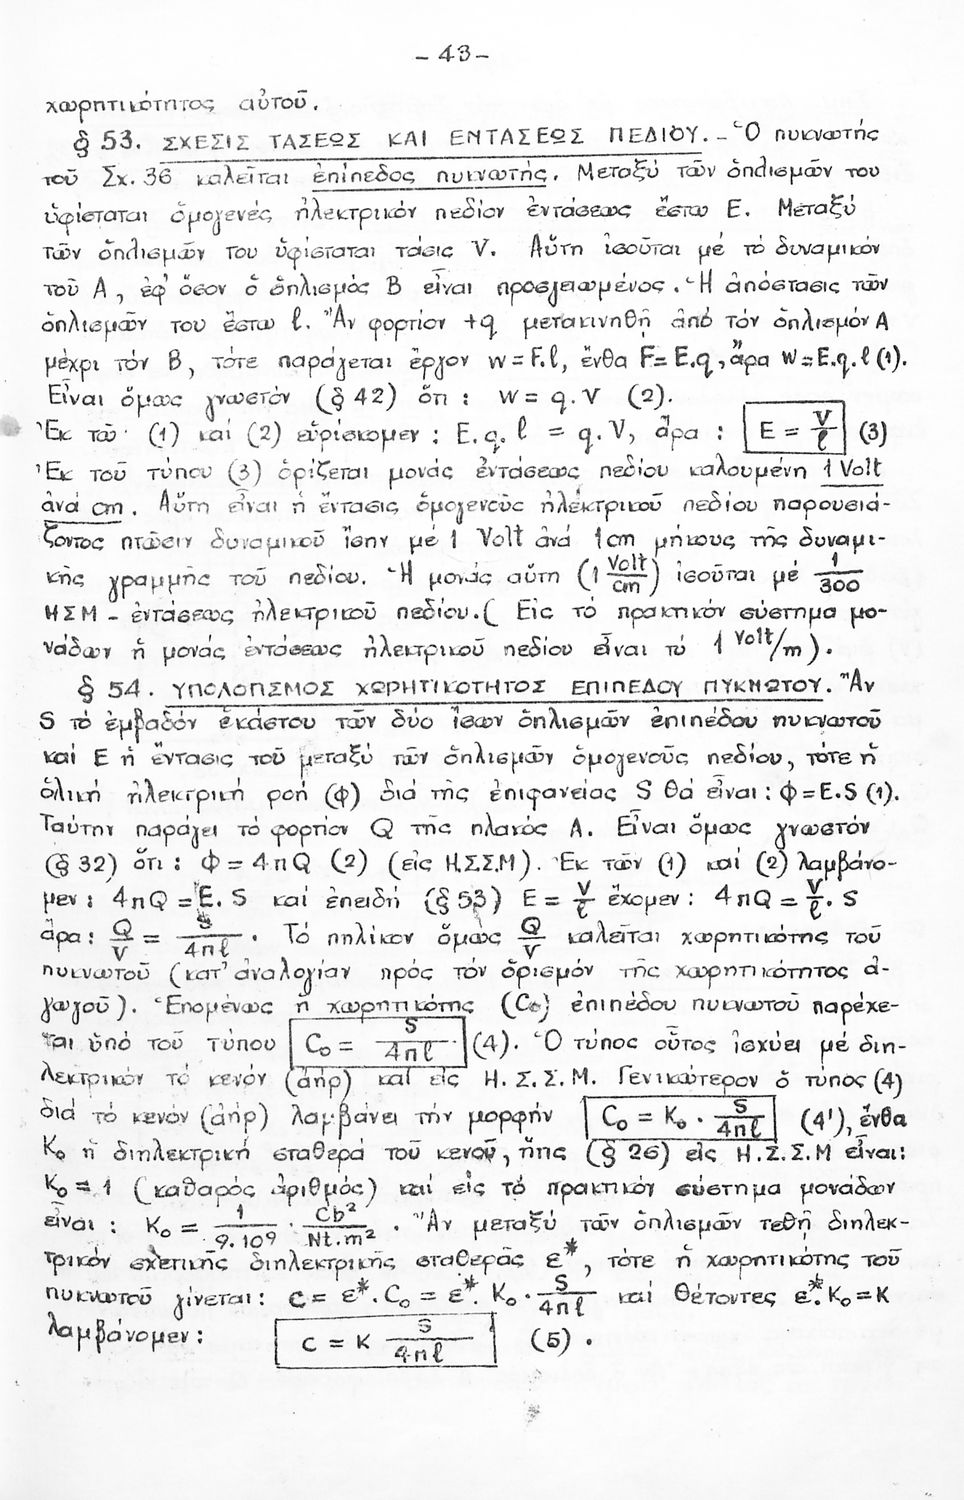 - 43 -
χωρητικότητος αὐτοῦ.
§ 53. ΣΧΕΣΙΣ ΤΑΣΕΩΣ ΚΑΙ ΕΝΤΑΣΕΩΣ ΠΕΔΙΟΥ. - Ὁ πυκνωτής
τοῦ Σχ. 36 καλεῖται ἐπίπεδος πυκνωτής. Μεταξύ τῶν ὁπλισμῶν του
ὑφίσταται ὁμογενές ἠλεκτρικόν πεδίον ἐντάσεως ἔστω E. Μεταξύ
τῶν ὁπλισμῶν του ὑφίσταται τάσις V. Αὕτη ἰσοῦται μέ τό δυναμικόν
τοῦ Α, ἐφ' ὅσον ὁ ὁπλισμός Β εἶναι προσγειωμένος. Ἡ ἀπόστασις τῶν
ὁπλισμῶν του ἔστω ℓ. Ἄν φορτίον +q μετακινηθῇ ἀπό τόν ὁπλισμόν Α
μέχρι τόν Β, τότε παράγεται ἔργον w = F.ℓ, ἔνθα F = E.q, ἄρα w = E.q.ℓ (1).
Εἶναι ὅμως γνωστόν (§ 42) ὅτι : w = q.V (2).
Ἐκ τῶν (1) καί (2) εὑρίσκομεν : E.q.ℓ = q.V, ἄρα : E = V/ℓ (3)
Ἐκ τοῦ τύπου (3) ὁρίζεται μονάς ἐντάσεως πεδίου καλουμένη 1 Volt
ἀνά cm. Αὕτη εἶναι ἡ ἔντασις ὁμογενοῦς ἠλεκτρικοῦ πεδίου παρουσιά-
ζοντος πτῶσιν δυναμικοῦ ἴσην μέ 1 Volt ἀνά 1cm μήκους τῆς δυναμι-
κῆς γραμμῆς τοῦ πεδίου. Ἡ μονάς αὕτη (1 Volt/cm) ἰσοῦται μέ 1/300
ΗΣΜ - ἐντάσεως ἠλεκτρικοῦ πεδίου. ( Εἰς τό πρακτικόν σύστημα μο-
νάδων ἡ μονάς ἐντάσεως ἠλεκτρικοῦ πεδίου εἶναι τό 1 Volt/m ).
§ 54. ΥΠΟΛΟΓΙΣΜΟΣ ΧΩΡΗΤΙΚΟΤΗΤΟΣ ΕΠΙΠΕΔΟΥ ΠΥΚΝΩΤΟΥ. Ἄν
S τό ἐμβαδόν ἑκάστου τῶν δύο ἴσων ὁπλισμῶν ἐπιπέδου πυκνωτοῦ
καί E ἡ ἔντασις τοῦ μεταξύ τῶν ὁπλισμῶν ὁμογενοῦς πεδίου, τότε ἡ
ὁλική ἠλεκτρική ροή (φ) διά τῆς ἐπιφανείας S θά εἶναι : φ = E.S (1).
Ταύτην παράγει τό φορτίον Q τῆς πλακός Α. Εἶναι ὅμως γνωστόν
(§ 32) ὅτι : φ = 4πQ (2) (εἰς Η.Σ.Σ.Μ). Ἐκ τῶν (1) καί (2) λαμβάνο-
μεν : 4πQ = E.S καί ἐπειδή (§ 53) E = V/ℓ ἔχομεν : 4πQ = V/ℓ . S
ἄρα : Q/V = S/4πℓ . Τό πηλίκον ὅμως Q/V καλεῖται χωρητικότης τοῦ
πυκνωτοῦ (κατ' ἀναλογίαν πρός τόν ὁρισμόν τῆς χωρητικότητος ἀ-
γωγοῦ). Ἑπομένως ἡ χωρητικότης (C₀) ἐπιπέδου πυκνωτοῦ παρέχε-
ται ὑπό τοῦ τύπου C₀ = S/4πℓ (4). Ὁ τύπος οὗτος ἰσχύει μέ διη-
λεκτρικόν τό κενόν (ἀήρ) καί εἰς Η.Σ.Σ.Μ. Γενικώτερον ὁ τύπος (4)
διά τό κενόν (ἀήρ) λαμβάνει τήν μορφήν C₀ = K₀ . S/4πℓ (4'), ἔνθα
K₀ ἡ διηλεκτρική σταθερά τοῦ κενοῦ, ἥτις (§ 26) εἰς Η.Σ.Σ.Μ εἶναι:
K₀ = 1 (καθαρός ἀριθμός) καί εἰς τό πρακτικόν σύστημα μονάδων
εἶναι : K₀ = 1/9.10⁹ . Cb²/Nt.m² . Ἄν μεταξύ τῶν ὁπλισμῶν τεθῇ διηλεκ-
τρικόν σχετικῆς διηλεκτρικῆς σταθερᾶς ε*, τότε ἡ χωρητικότης τοῦ
πυκνωτοῦ γίνεται : C = ε*.C₀ = ε*. K₀ . S/4πℓ καί θέτοντες ε*.K₀ = K
λαμβάνομεν : C = K S/4πℓ (5) .